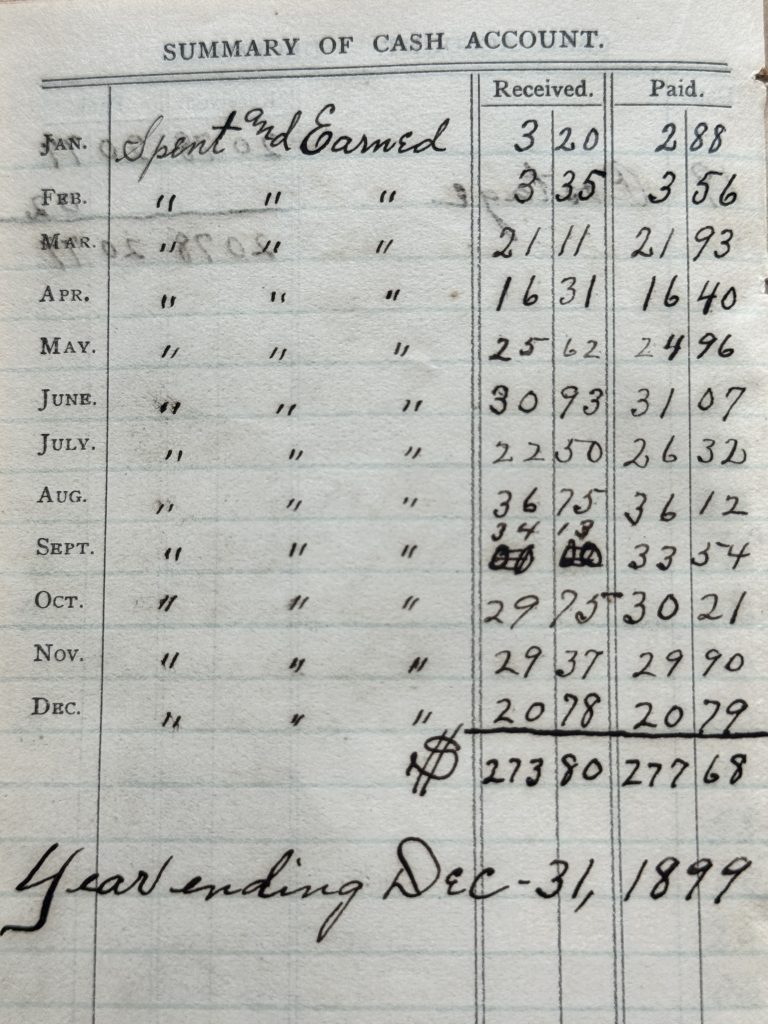 SUMMARY OF CASH ACCOUNT.
Received. Paid.
JAN. Spent and Earned 3 20 2 88
FEB. " " " 3 35 3 56
MAR. " " " 21 11 21 93
APR. " " " 16 31 16 40
MAY. " " " 25 62 24 96
JUNE. " " " 30 93 31 07
JULY. " " " 22 50 26 32
AUG. " " " 36 75 36 12
34 13
SEPT. " " " 33 54
OCT. " " " 29 75 30 21
NOV. " " " 29 37 29 90
DEC. " " " 20 78 20 79
$ 273 80 277 68
Year ending Dec - 31, 1899